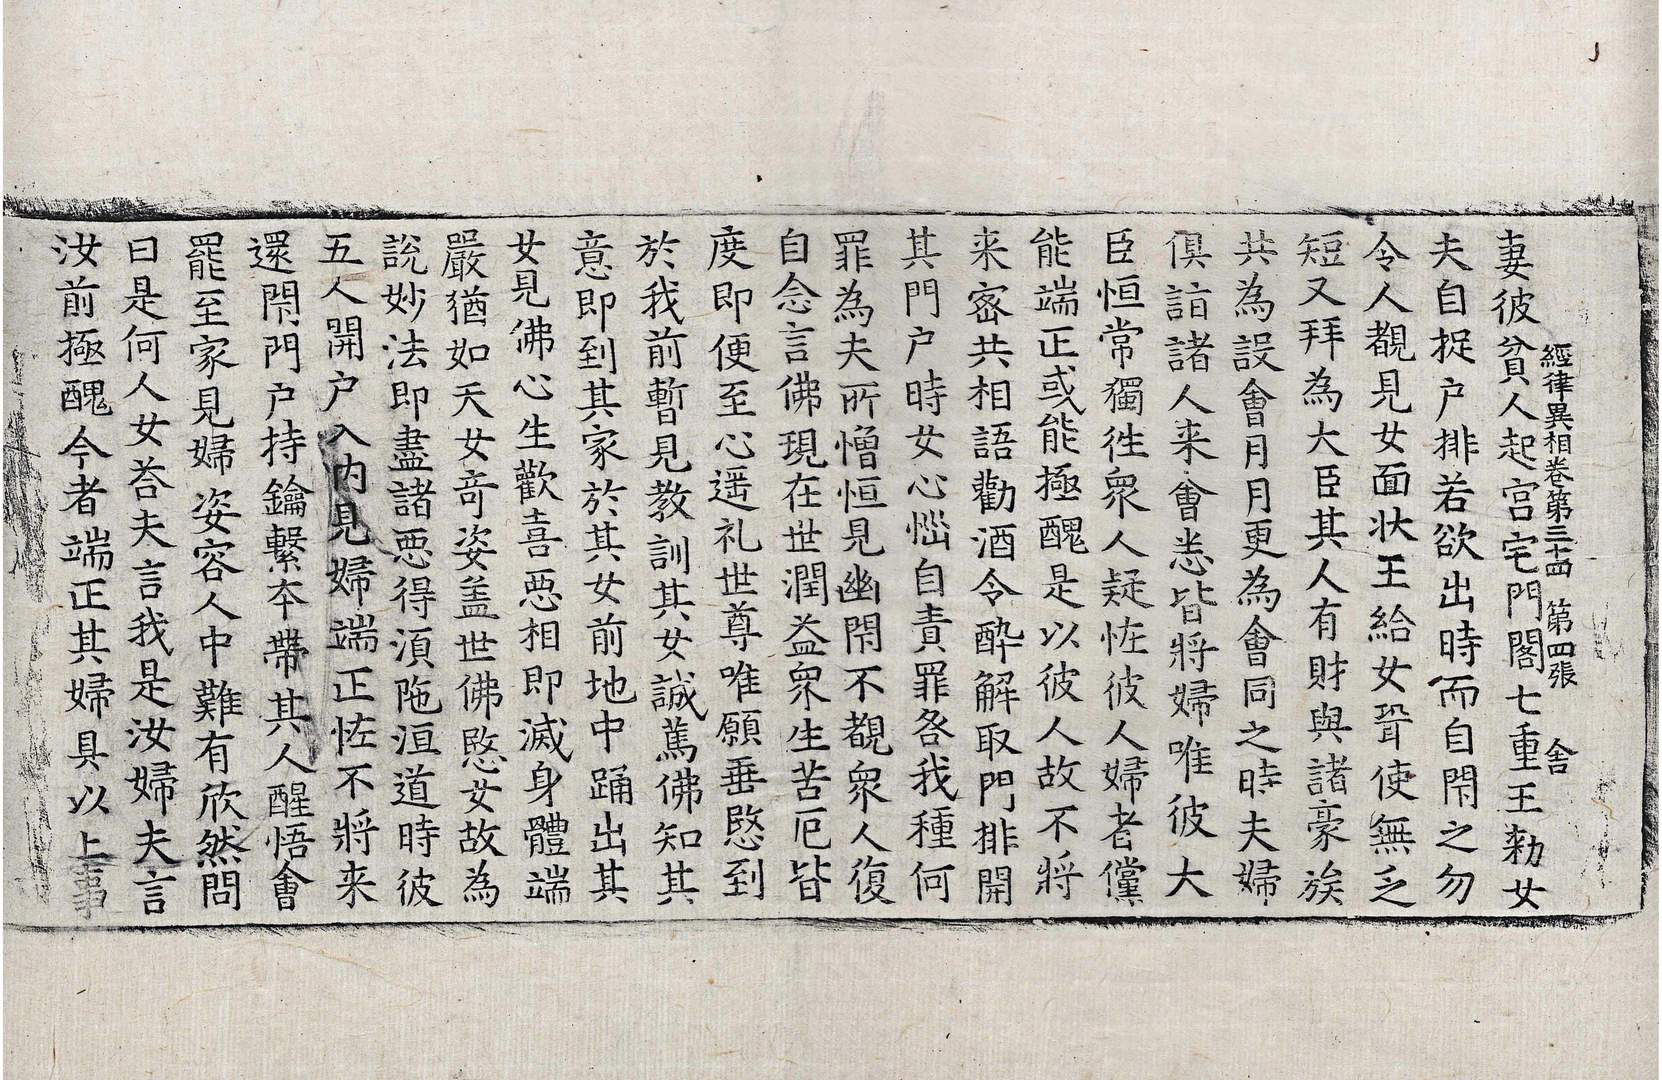 經律異相卷第三十四 第四張 舍
妻彼貧人起宫宅門閤七重王勑女
夫自捉户排若欲出時而自閇之勿
令人覩見女面状王給女聟使無乏
短又拜為大臣其人有財與諸豪族
共為設會月月更為會同之時夫婦
俱詣諸人来會悉皆將婦唯彼大
臣恒常獨徃衆人疑恠彼人婦者儻
能端正或能極醜是以彼人故不將
来宻共相語勸酒令醉解取門排開
其門户時女心惱自責罪咎我種何
罪為夫所憎恒見幽閇不覩衆人復
自念言佛現在世潤益衆生苦厄皆
度即便至心遥礼世尊唯願垂愍到
於我前暫見教訓其女誠篤佛知其
意即到其家於其女前地中踊出其
女見佛心生歡喜惡相即滅身體端
嚴猶如天女竒姿盖世佛愍女故為
說妙法即盡諸惡得湏陁洹道時彼
五人開户入内見婦端正恠不將来
還閇門户持鑰繫夲帶其人醒悟會
罷至家見婦姿容人中難有欣然問
曰是何人女荅夫言我是汝婦夫言
汝前極醜今者端正其婦具以上事